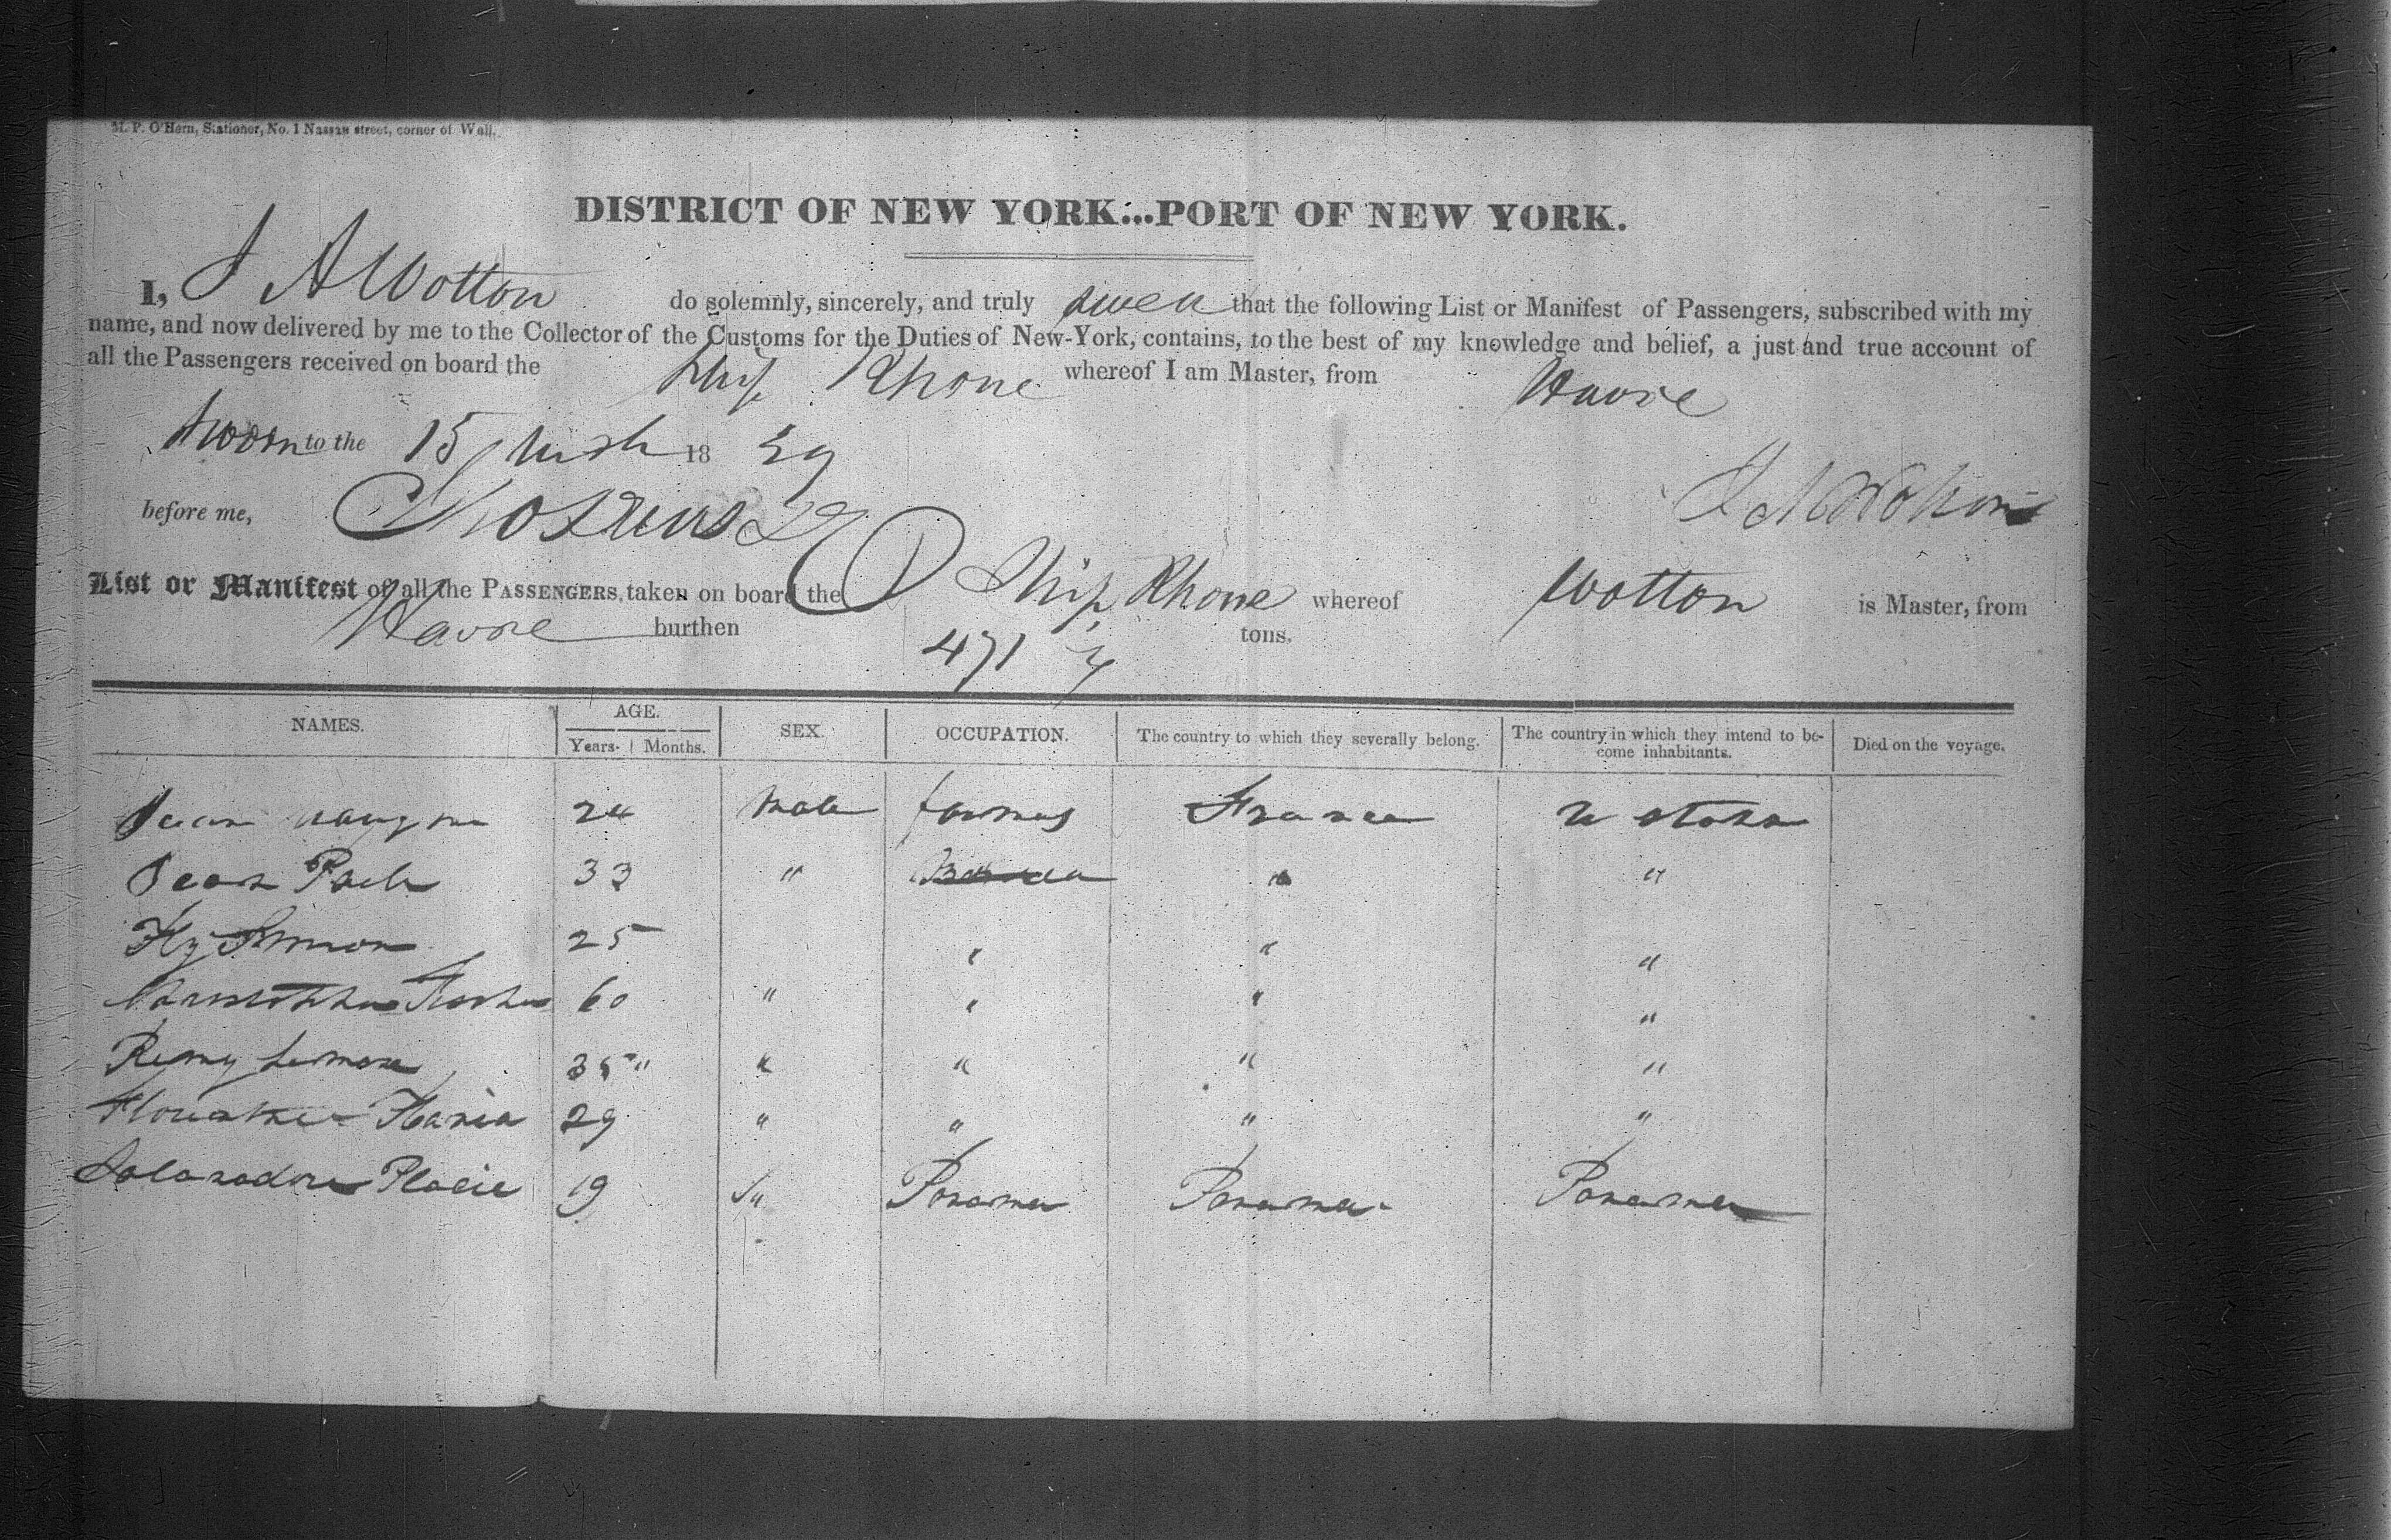 M. P. O'Hern, Stationer, No. 1 Nassau street, corner of Wall.
DISTRICT OF NEW YORK...PORT OF NEW YORK.
I, J A Wotton do solemnly, sincerely, and truly that the following List or Manifest of Passengers, subscribed with my
name, and now delivered by me to the Collector of the Customs for the Duties of New-York, contains, to the best of my knowledge and belief, a just and true account of
all the Passengers received on board the Ship Rhone whereof I am Master, from Havre
Sworn to the 15 18 39
before me,
List or Manifest of all the PASSENGERS, taken on board the Ship Rhone whereof Wotton is Master, from
Havre burthen 471 tons.
NAMES. AGE. SEX. OCCUPATION. The country to which they severally belong. The country in which they intend to be-
come inhabitants. Died on the voyage.
Years. Months.
Jean 24 Male France U States
Jean 33 " " "
Hy Simon 25 " " "
60 " " " "
Remy 35 " " " " "
29 " " " "
19 " Panama Panama Panama